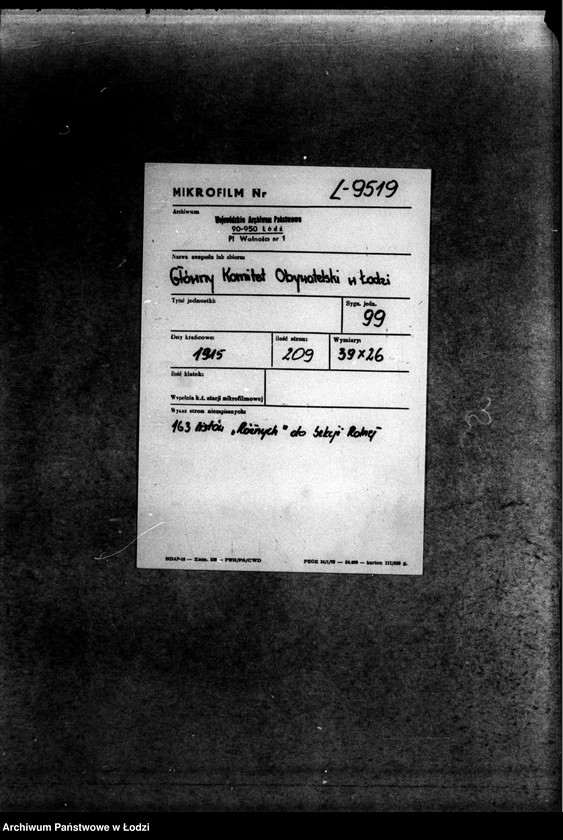 MIKROFILM Nr L-9519
Archiwum
Wojewódzkie Archiwum Państwowe
90-950 Łódź
Pl Wolności nr 1
Nazwa zespołu lub zbioru:
Główny Komitet Obywatelski w Łodzi
Tytuł jednostki:
Sygn. jedn.
99
Daty krańcowe:
1915
Ilość stron:
209
Wymiary:
39x26
Ilość klatek:
Wypełnia k.t. stacji mikrofilmowej
Wykaz stron niezapisanych:
163 listów „Różnych" do Sekcji Rolnej
Archiwum Państwowe w Łodzi